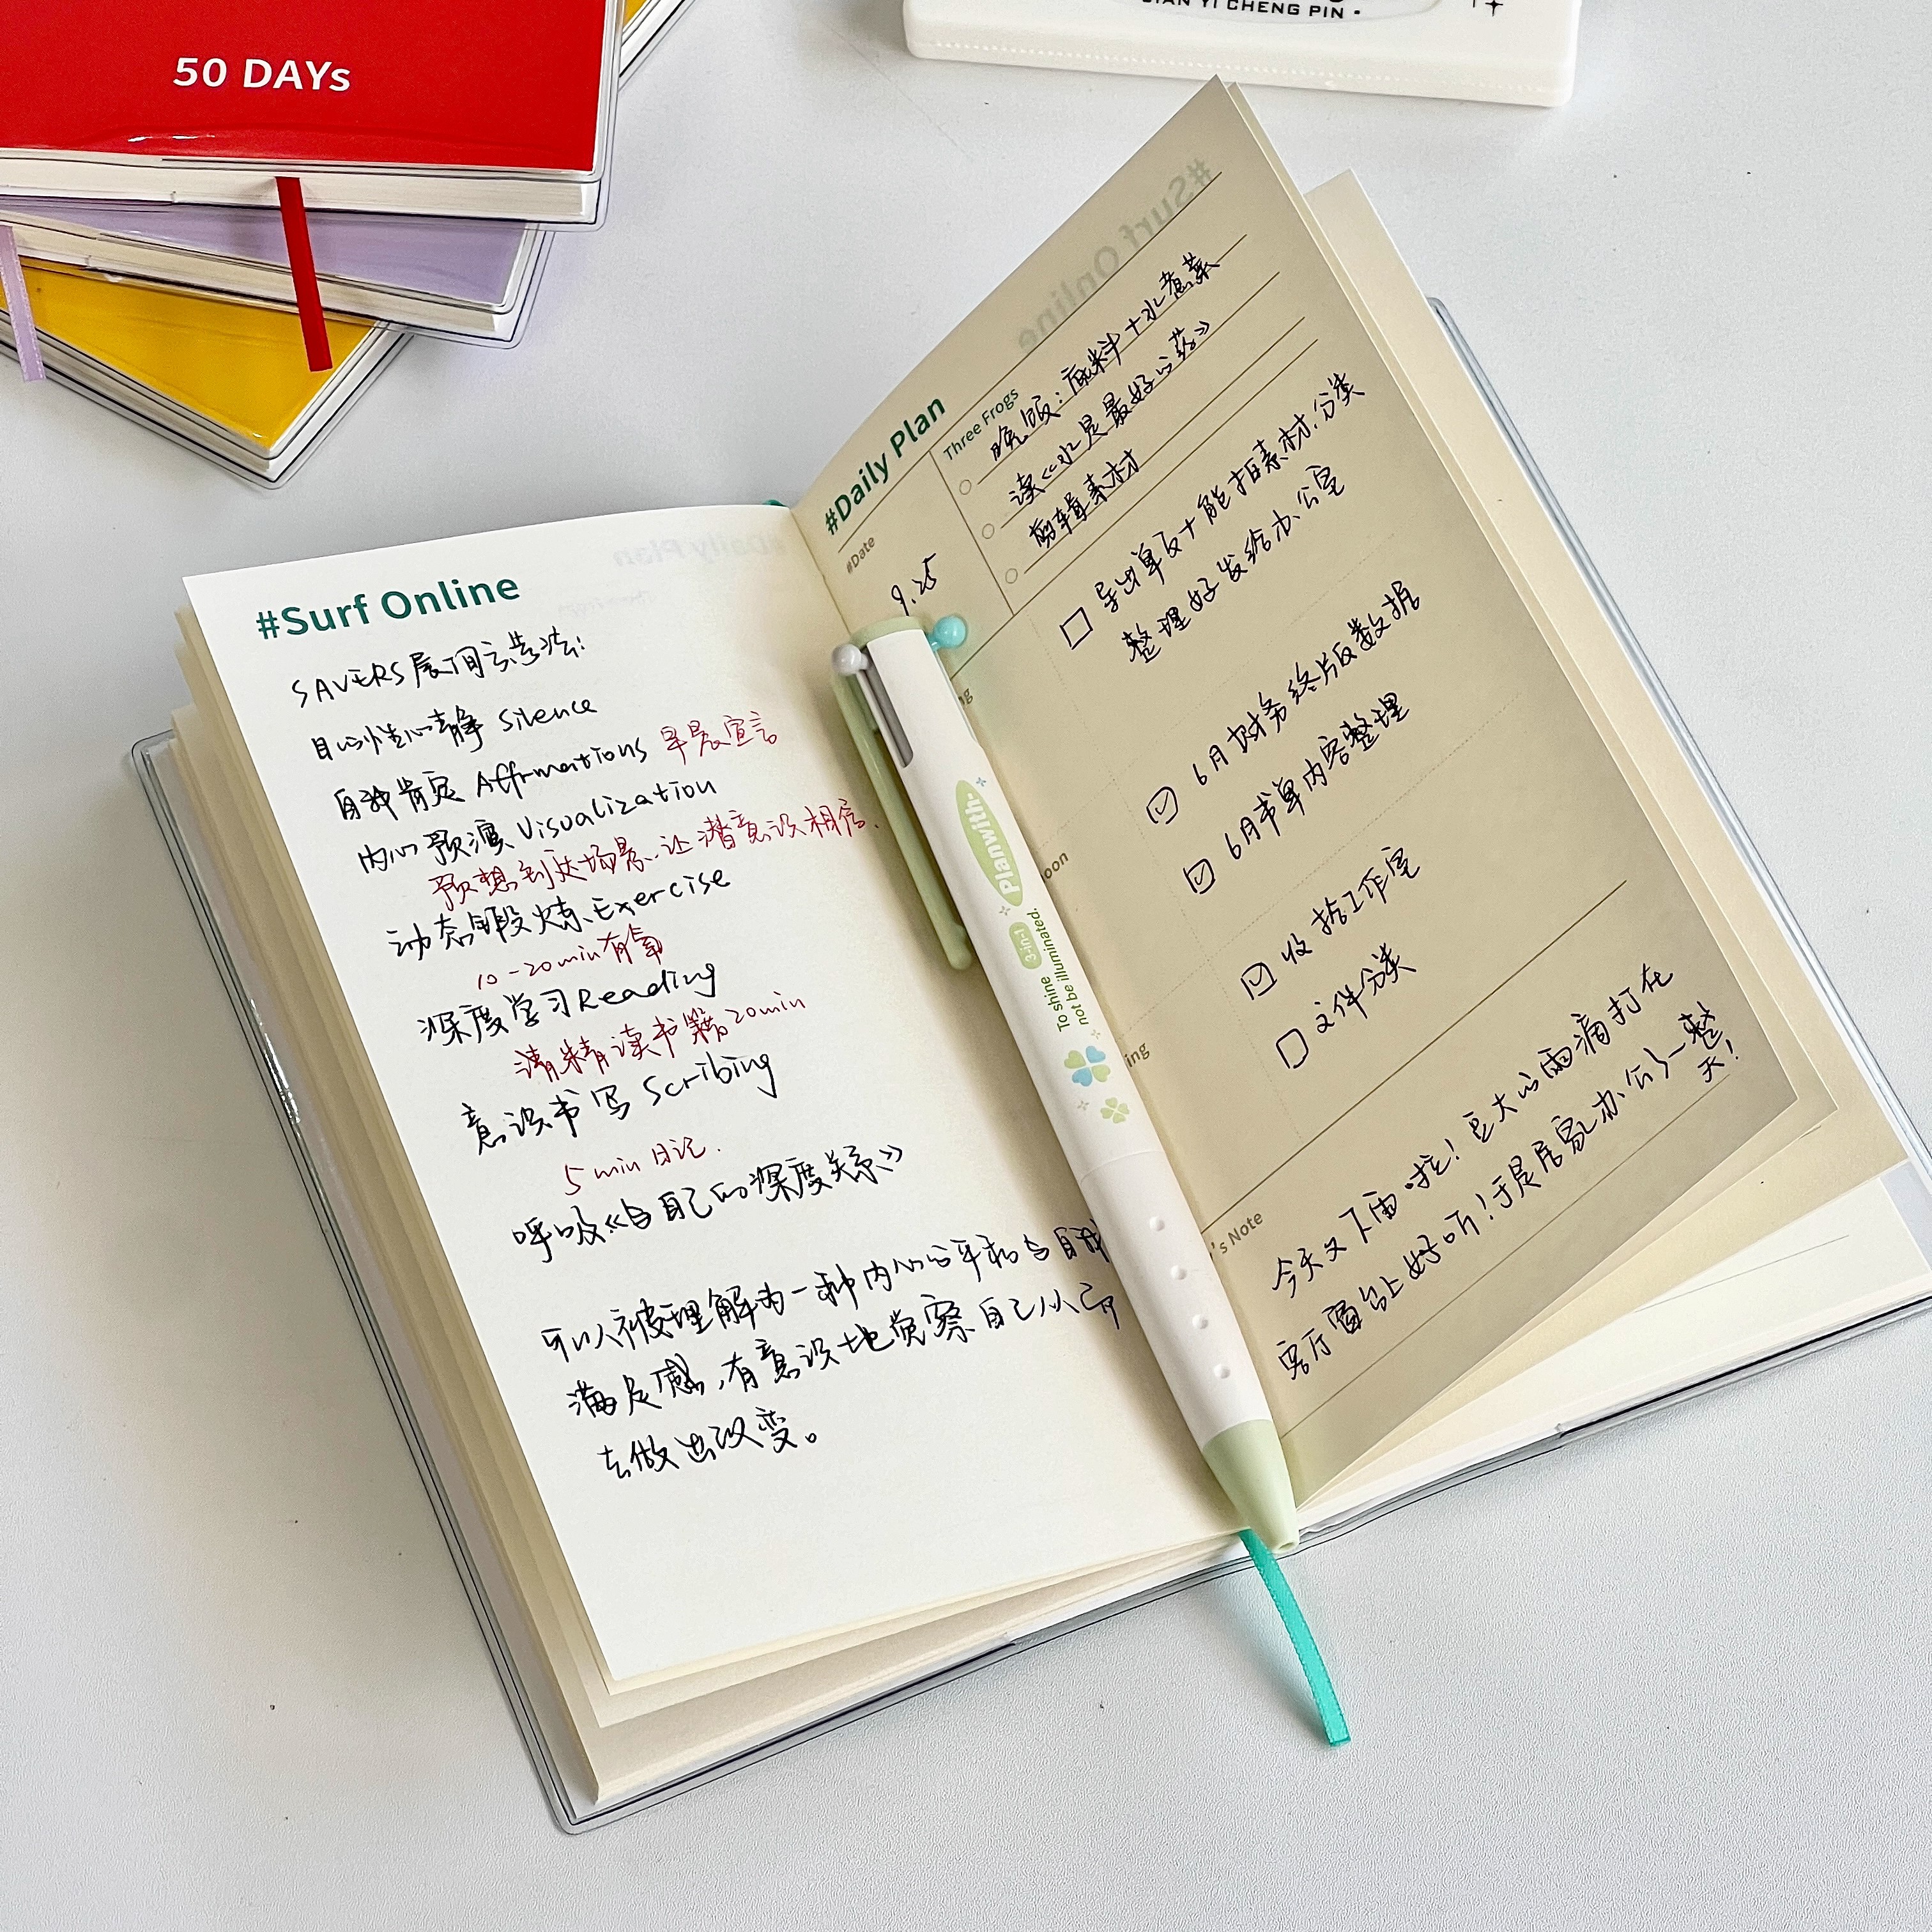 50 DAYs
YI CHENG PIN -
#Surf Online
SAVERS展
自心性心静 Silence
自我肯定 Affirmations 早晨宣言
内心预演 Visualization
预想到达场景.让潜意识相信.
动态锻炼 Exercise
10-20min有氧
深度学习Reading
请精读书籍20min
意识书写 Scribing
5min 日记.
呼吸《与自己的深度关系》
可以被理解为一种内心公平和与自我
满足感,有意识地觉察自己从而
去做出改变。
#Daily Plan
Three Frogs
晚饭:底料+水煮菜
读《水是最好的药》
剪辑素材
#Date
9.25
导出单反+能拍素材.分类
整理好发给办公室
6月财务终版数据
6月书单内容整理
收拾工作室
文件分类
's Note
今天又下雨啦!巨大的雨滴打在
客厅窗台上好好听!于是居家办公了一整
天!
Planwith-
3-in-1
To shine
not be illuminated.